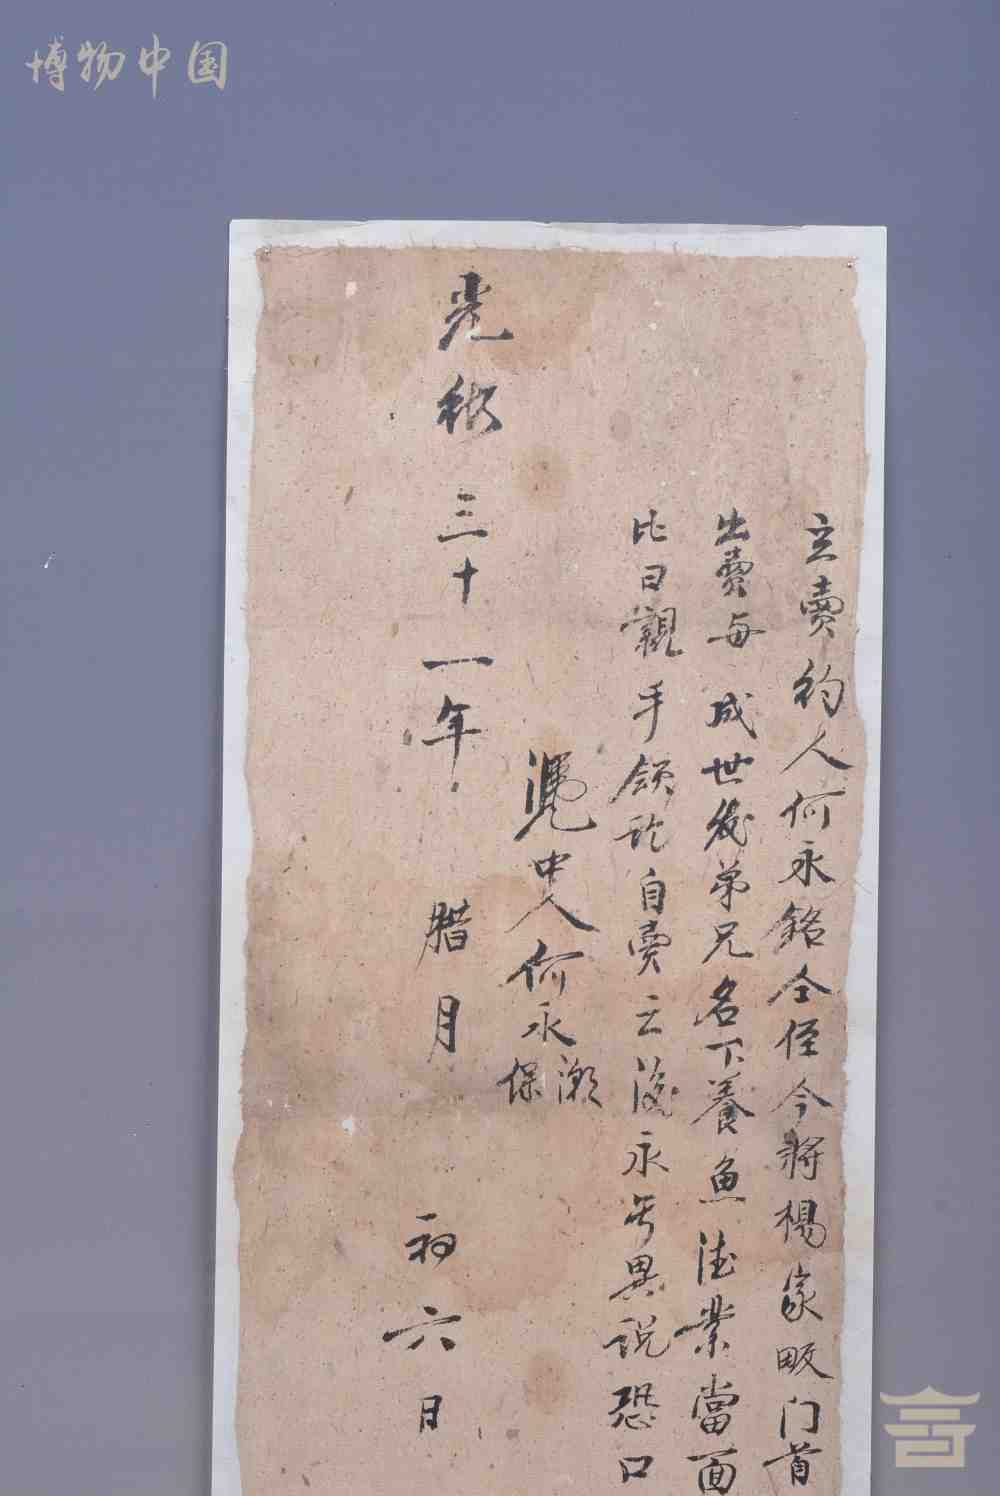 博物中国
立賣約人何永銘仝侄今將楊家畈门首
出賣与成世後弟兄名下養魚 業當面
比日親手領訖自賣之後永無異說恐口
憑中人何永
保
光緒三十一年腊月初六日